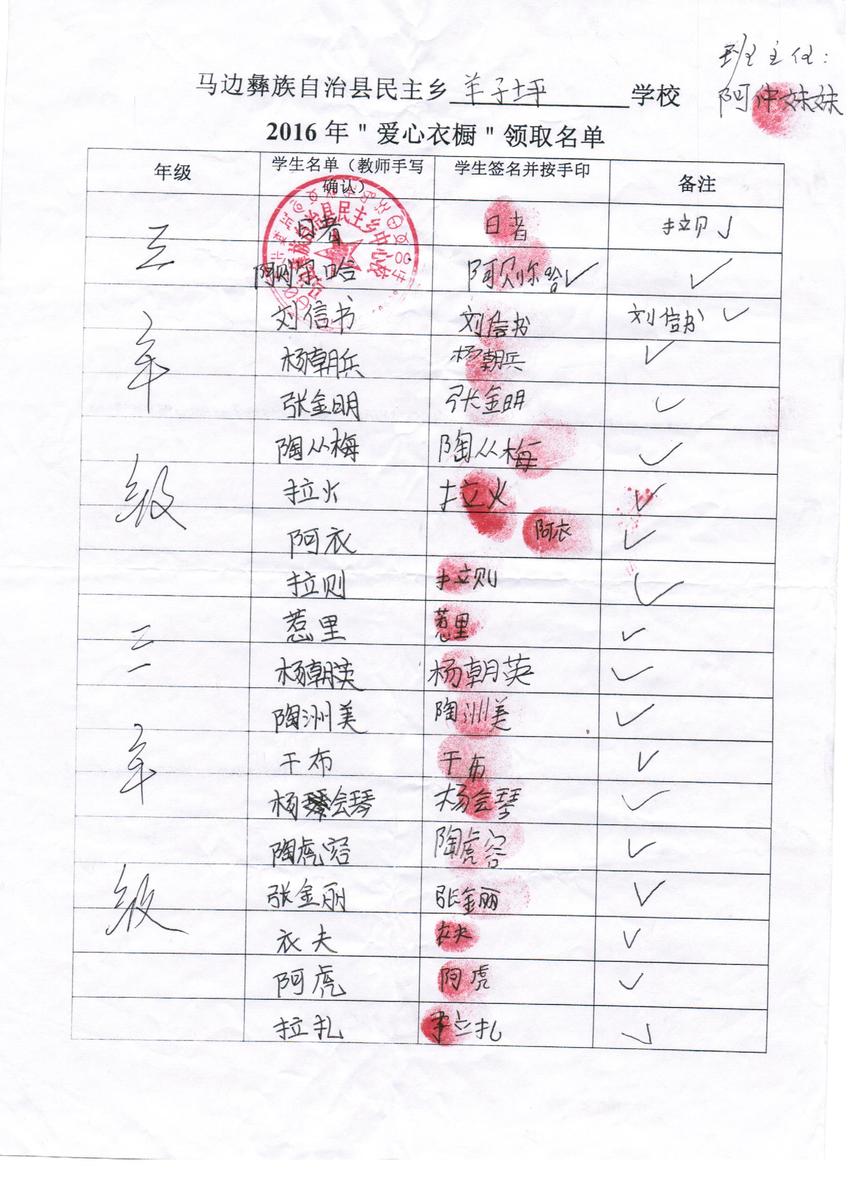 班主任：
马边彝族自治县民主乡 羊子坪 学校
阿伸妹妹
2016 年 " 爱心衣橱 " 领取名单
年级 学生名单（教师手写确认） 学生签名并按手印 备注
日者 日者 拉则 ✓
三 阿则尔哈 阿则尔哈 ✓ ✓
年 刘信书 刘信书 刘信书 ✓
杨朝兵 杨朝兵 ✓
张金明 张金明 ✓
陶从梅 陶从梅 ✓
级 拉火 拉火 ✓
阿衣 阿衣 ✓
拉则 拉则 ✓
惹里 惹里 ✓
三 杨朝英 杨朝英 ✓
陶洲美 陶洲美 ✓
年 干布 干布 ✓
杨会琴 杨会琴 ✓
陶虎容 陶虎容 ✓
级 张金丽 张金丽 ✓
衣夫 衣夫 ✓
阿虎 阿虎 ✓
拉扎 拉扎 ✓